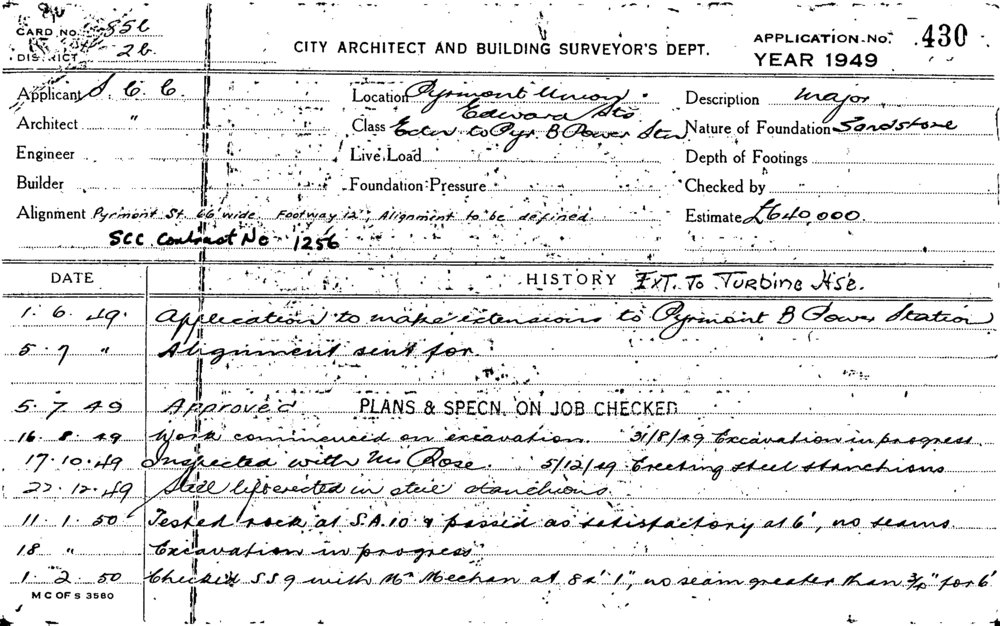 CARD NO. 856
DISTRICT 26
CITY ARCHITECT AND BUILDING SURVEYOR'S DEPT.
APPLICATION NO. 430
YEAR 1949
Applicant S. C. C.
Location Pyrmont Union
Edward Sts
Description Major
Architect "
Class Extn to Pyr. B Power Stn
Nature of Foundation Sandstone
Engineer
Live Load
Depth of Footings
Builder
Foundation Pressure
Checked by
Alignment Pyrmont St. 66 wide Footway 12'; Alignment to be defined.
Estimate £640,000
SCC Contract No 1256
DATE
HISTORY EXT. TO TURBINE HSE.
1. 6. 49. Application to make extensions to Pyrmont B Power Station
5. 7 " Alignment sent for.
5. 7. 49 Approved PLANS & SPECN. ON JOB CHECKED
16. 8. 49 Work commenced on excavation. 31/8/49 Excavation in progress
17. 10. 49 Inspected with Mr Rose. 5/12/49 Erecting steel stanchions
22. 12. 49 Steel erected in steel stanchions
11. 1. 50 Tested rock at S.A.10 & passed as satisfactory at 6', no seams.
18 " Excavation in progress
1. 2. 50 Checked S S 9 with Mr Meehan at 1", no seam greater than 3/4" for 6'
M C OF S 3560